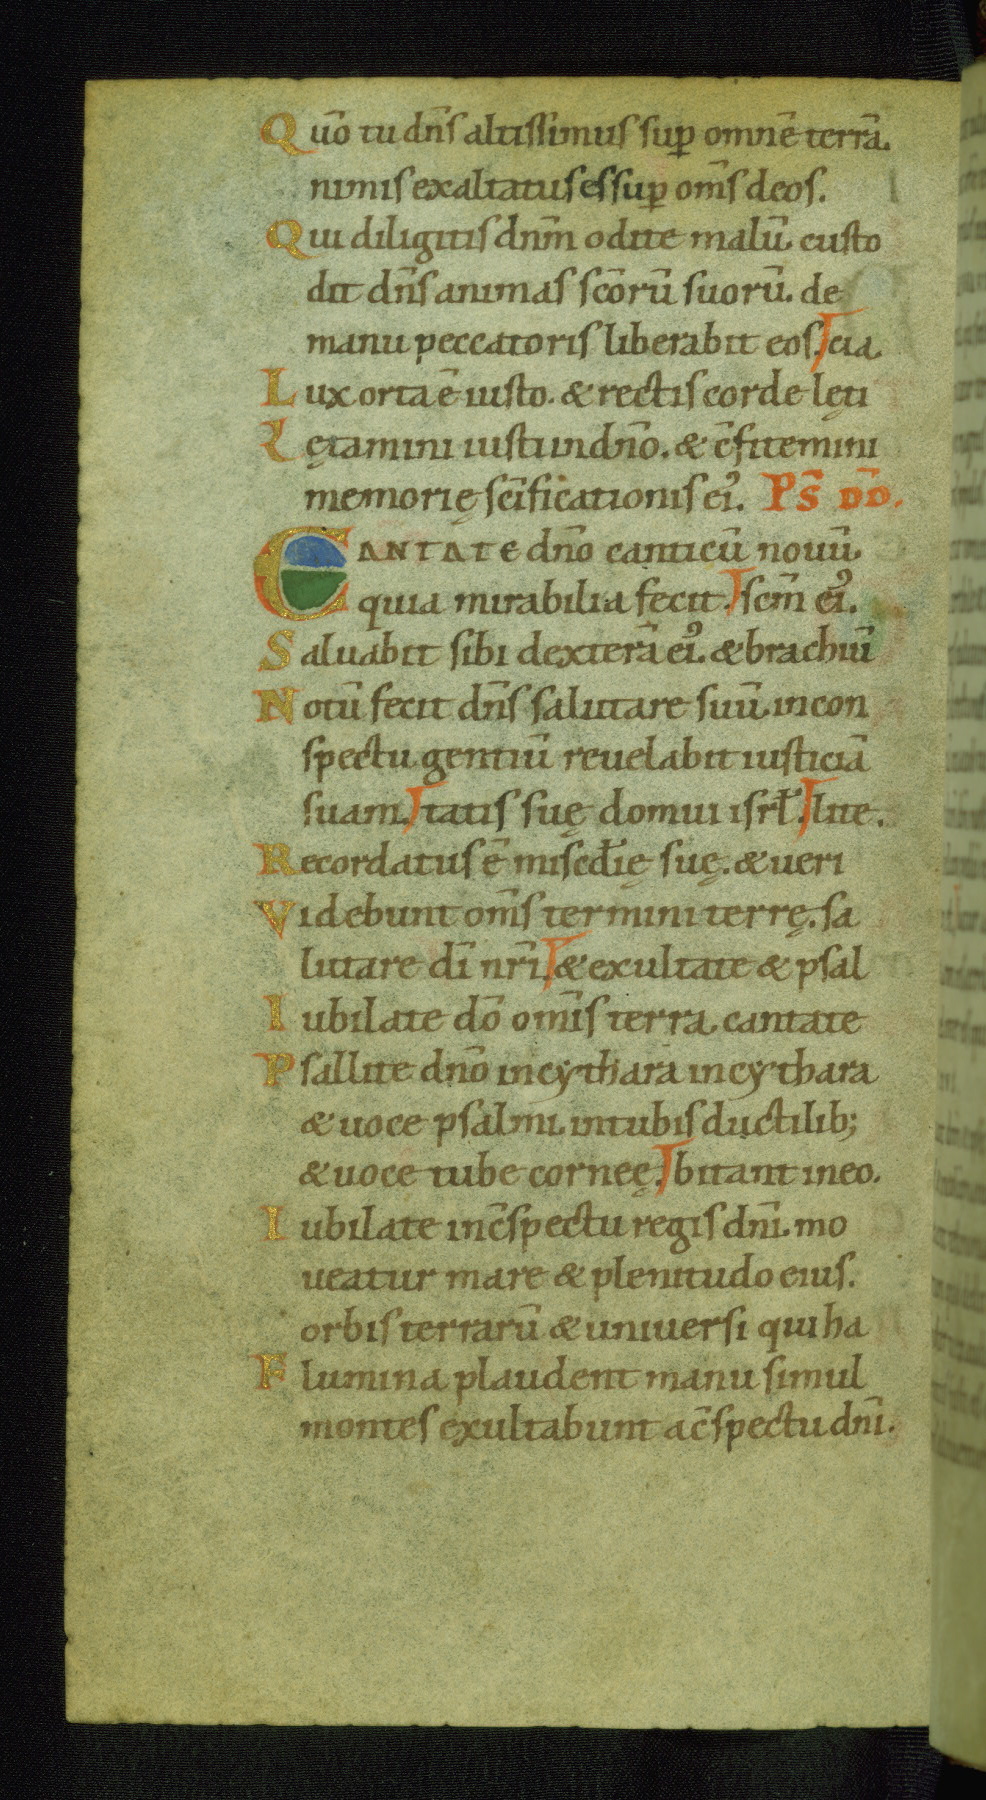 Quō tu dn̄s altissimus sup̲ omnē terrā.
nimis exaltatus es sup̲ om̄s deos.
Qui diligitis dnm̄ odite malū. custo
dit dn̄s animas sc̄orū suorū. de
manu peccatoris liberabit eos. cia.
Lux orta ē iusto. & rectis corde lęti
Lętamini iusti in dn̄o. & c̄fitemini
memorię sc̄ificationis ei᾽. Ps̄ DD̄.
CANTATE dn̄o canticū nouū.
quia mirabilia fecit. scm̄ ei᾽.
Saluabit sibi dexterā ei᾽. & brachiū
Notū fecit dn̄s salutare suū. in con
spectu gentiū reuelabit iusticiā
suam. tatis suę domui isrł. lite.
Recordatus ē misc̄dię suę. & ueri
Videbunt om̄s termini terrę. sa
lutare dī nr̄i. & exultate & psal
Iubilate dō omīs terra. cantate
Psallite dn̄o in cythara in cythara
& uoce psalmi. in tubis ductilib;
& uoce tube corneę. bitant in eo.
Iubilate in c̄spectu regis dn̄i. mo
ueatur mare & plenitudo eius.
orbis terrarū & uniuersi qui ha
Flumina plaudent manu simul
montes exultabunt a c̄spectu dn̄i.